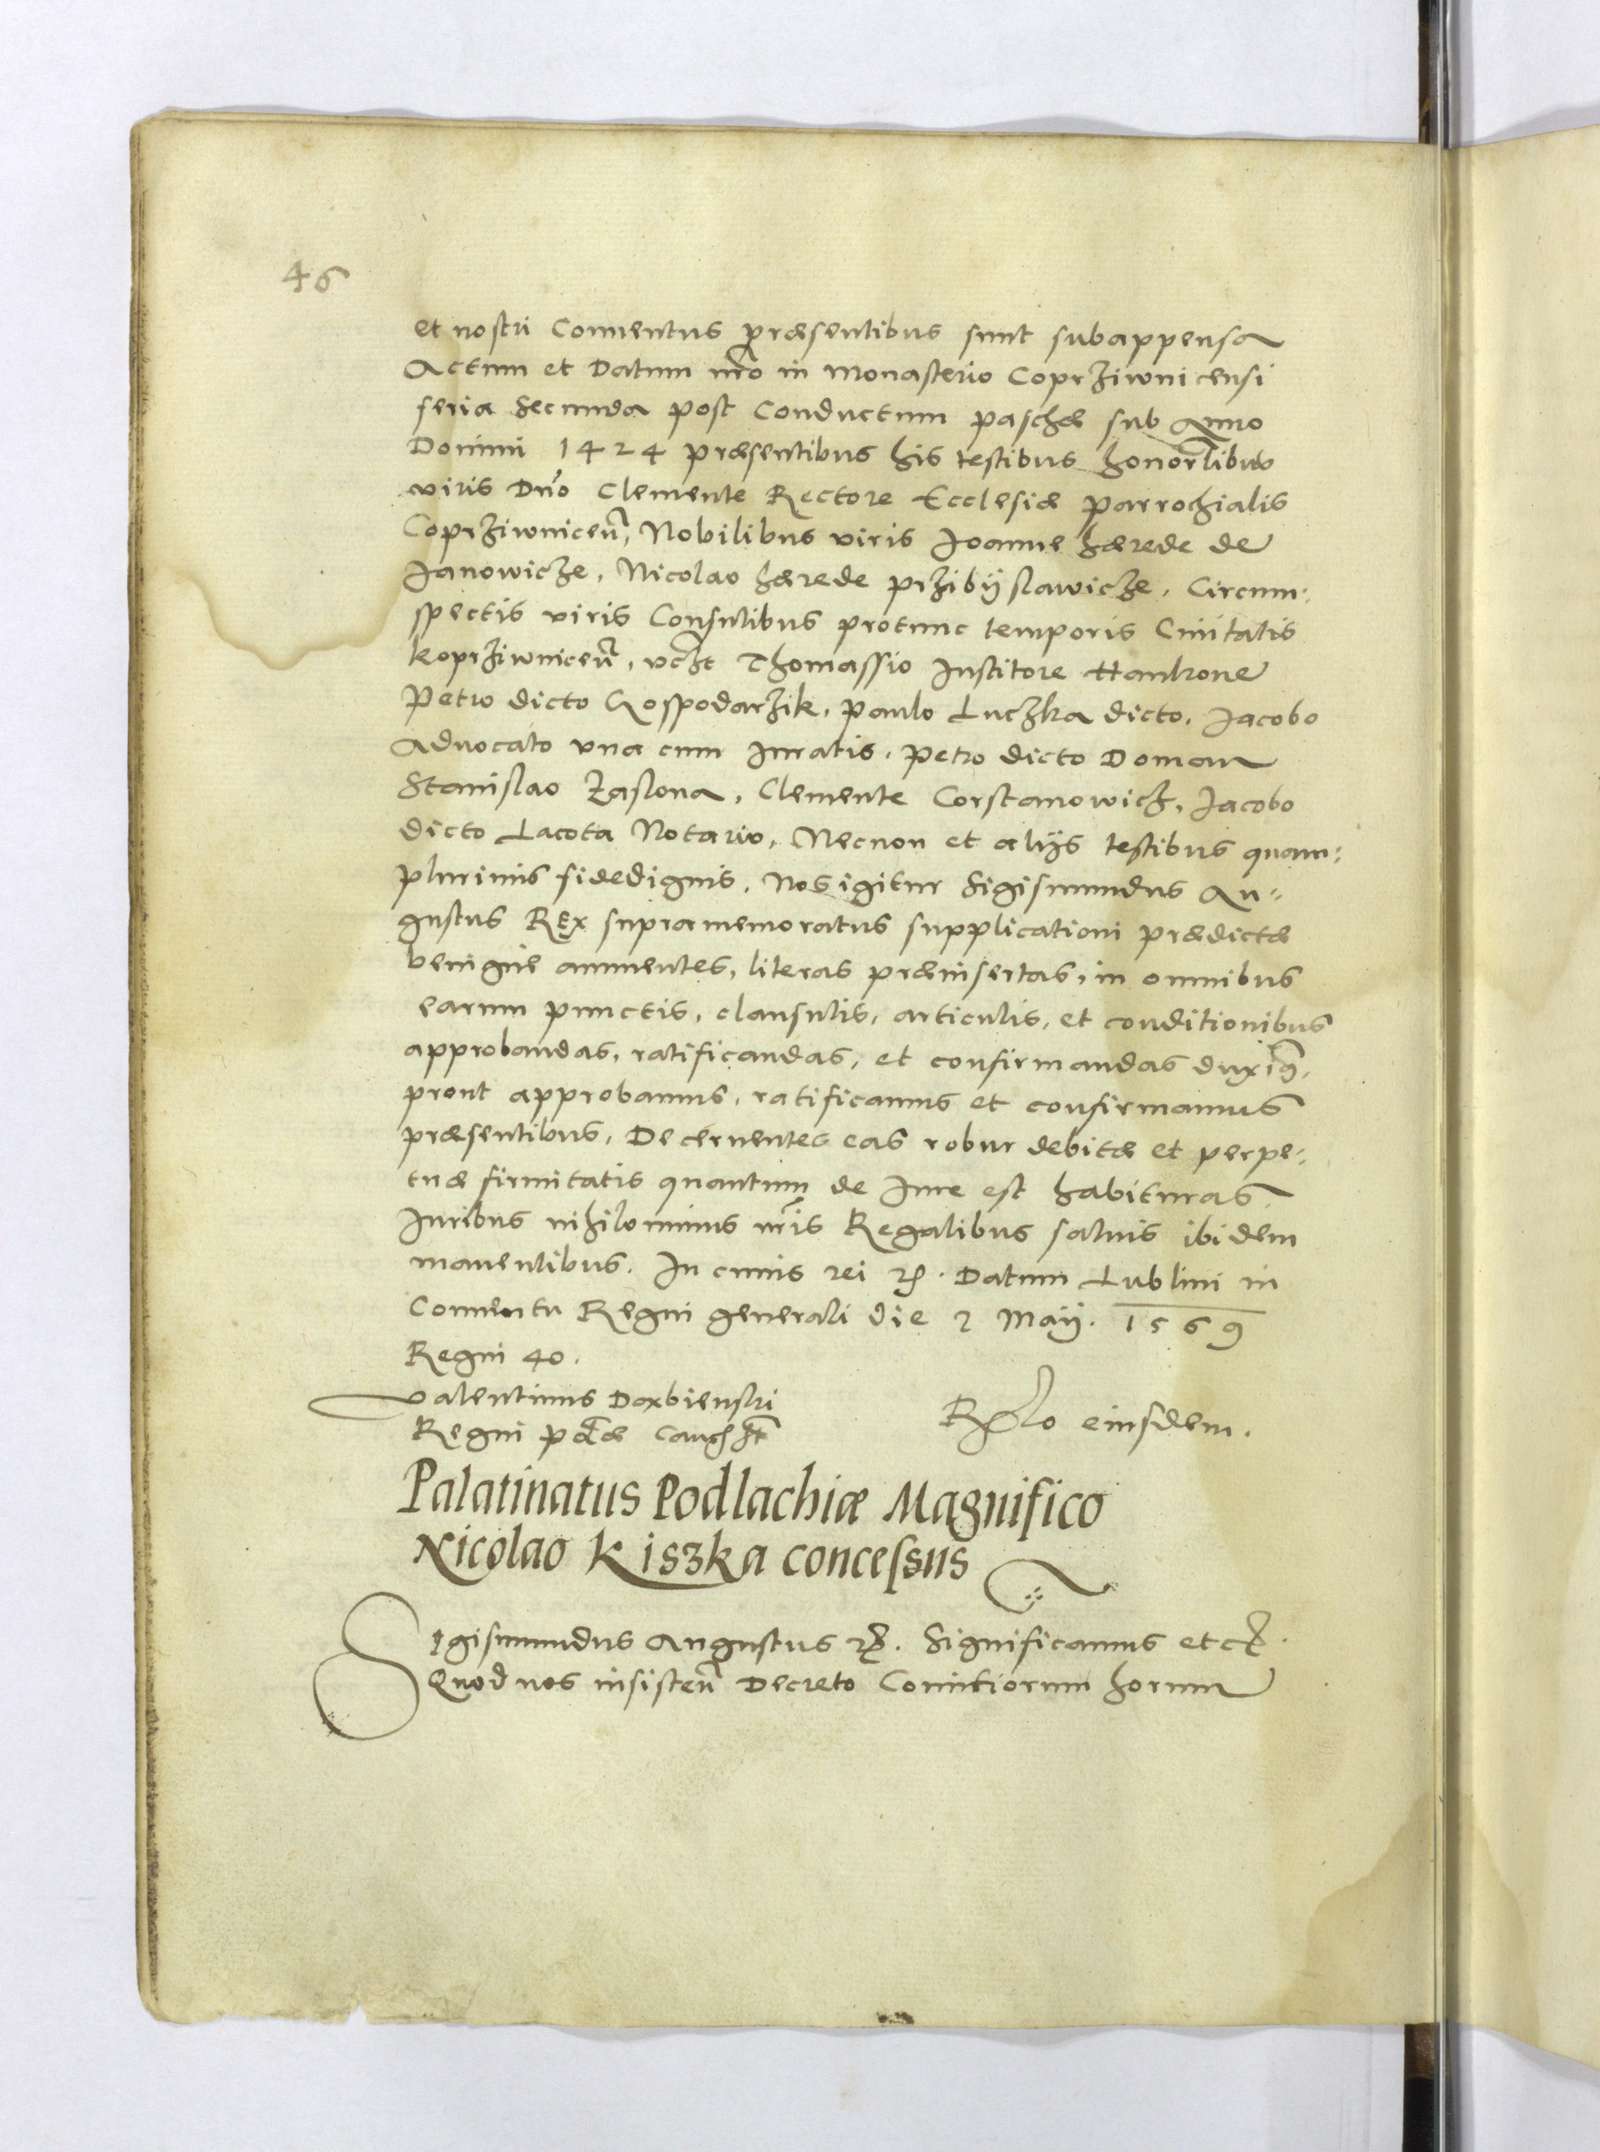 46
et nostri Conuentus præsentibus sunt subappensa
Actum et Datum nr̃o in Monasterio Coprziwnicensi
feria secunda post Conductum paschæ sub Anno
Domini 1424 præsentibus his testibus honor̃libus
viris Dño Clemente Rectore Ecclesiæ parrochialis
Coprziwniceñ, Nobilibus viris Joanne hærede de
Janowicze, Nicolao hærede przibÿslawicze, Circum-
spectis viris Consulibus protunc temporis Ciuitatis
koprziwniceñ, vczt Thomassio Institore Hankone
Petro dicto Gospodarzik, paulo Luczka dicto, Jacobo
Aduocato vna cum Iuratis, Petro dicto Doman
Stanislao Zaslona, Clemente Corstanowicz, Jacobo
dicto Lacota Notario, Necnon et alijs testibus quam-
plurimis fidedignis, Nos igitur Sigismundus Au-
gustus REx supramemoratus supplicationi prædictæ
benignè annuentes, literas præinsertas, in omnibus
earum punctis, clausulis, articulis, et conditionibus
approbandas, ratificandas, et confirmandas duxim9,
prout approbamus, ratificamus et confirmamus
præsentibus, Decernentes eas robur debitæ et perpe-
tuæ firmitatis quantum de Iure est habituras
Iuribus nihilominus nr̃is Regalibus saluis ibidem
manentibus. In cuius rei &c. Datum Lublini in
Conuentu Regni generali die 2 Maÿ. 1569
Regni 40.
Valentinus Dæbienski
Regni poloniæ Canc̃
Rel̃o eiusdem.
Palatinatus Podlachiæ Magnifico
Nicolao Kiszka concessus
Sigismundus Augustus &c. Significamus etc.
Quod nos insisteñ Decreto Comitiorum horum